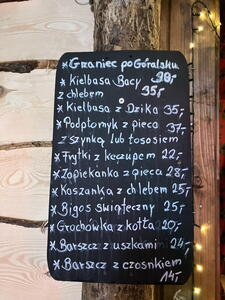 * Grzaniec po Góralsku
* Kiełbasa Bacy 30,-
z chlebem 35,-
* Kiełbasa z Dzika 35,-
* Podpłomyk z pieca 37,-
z szynką lub łososiem
* Frytki z keczupem 22,-
* Zapiekanka z pieca 28,-
* Kaszanka z chlebem 25,-
* Bigos świąteczny 25,-
* Grochówka z kotła 20,-
* Barszcz z uszkami 24,-
* Barszcz z czosnkiem
14,-